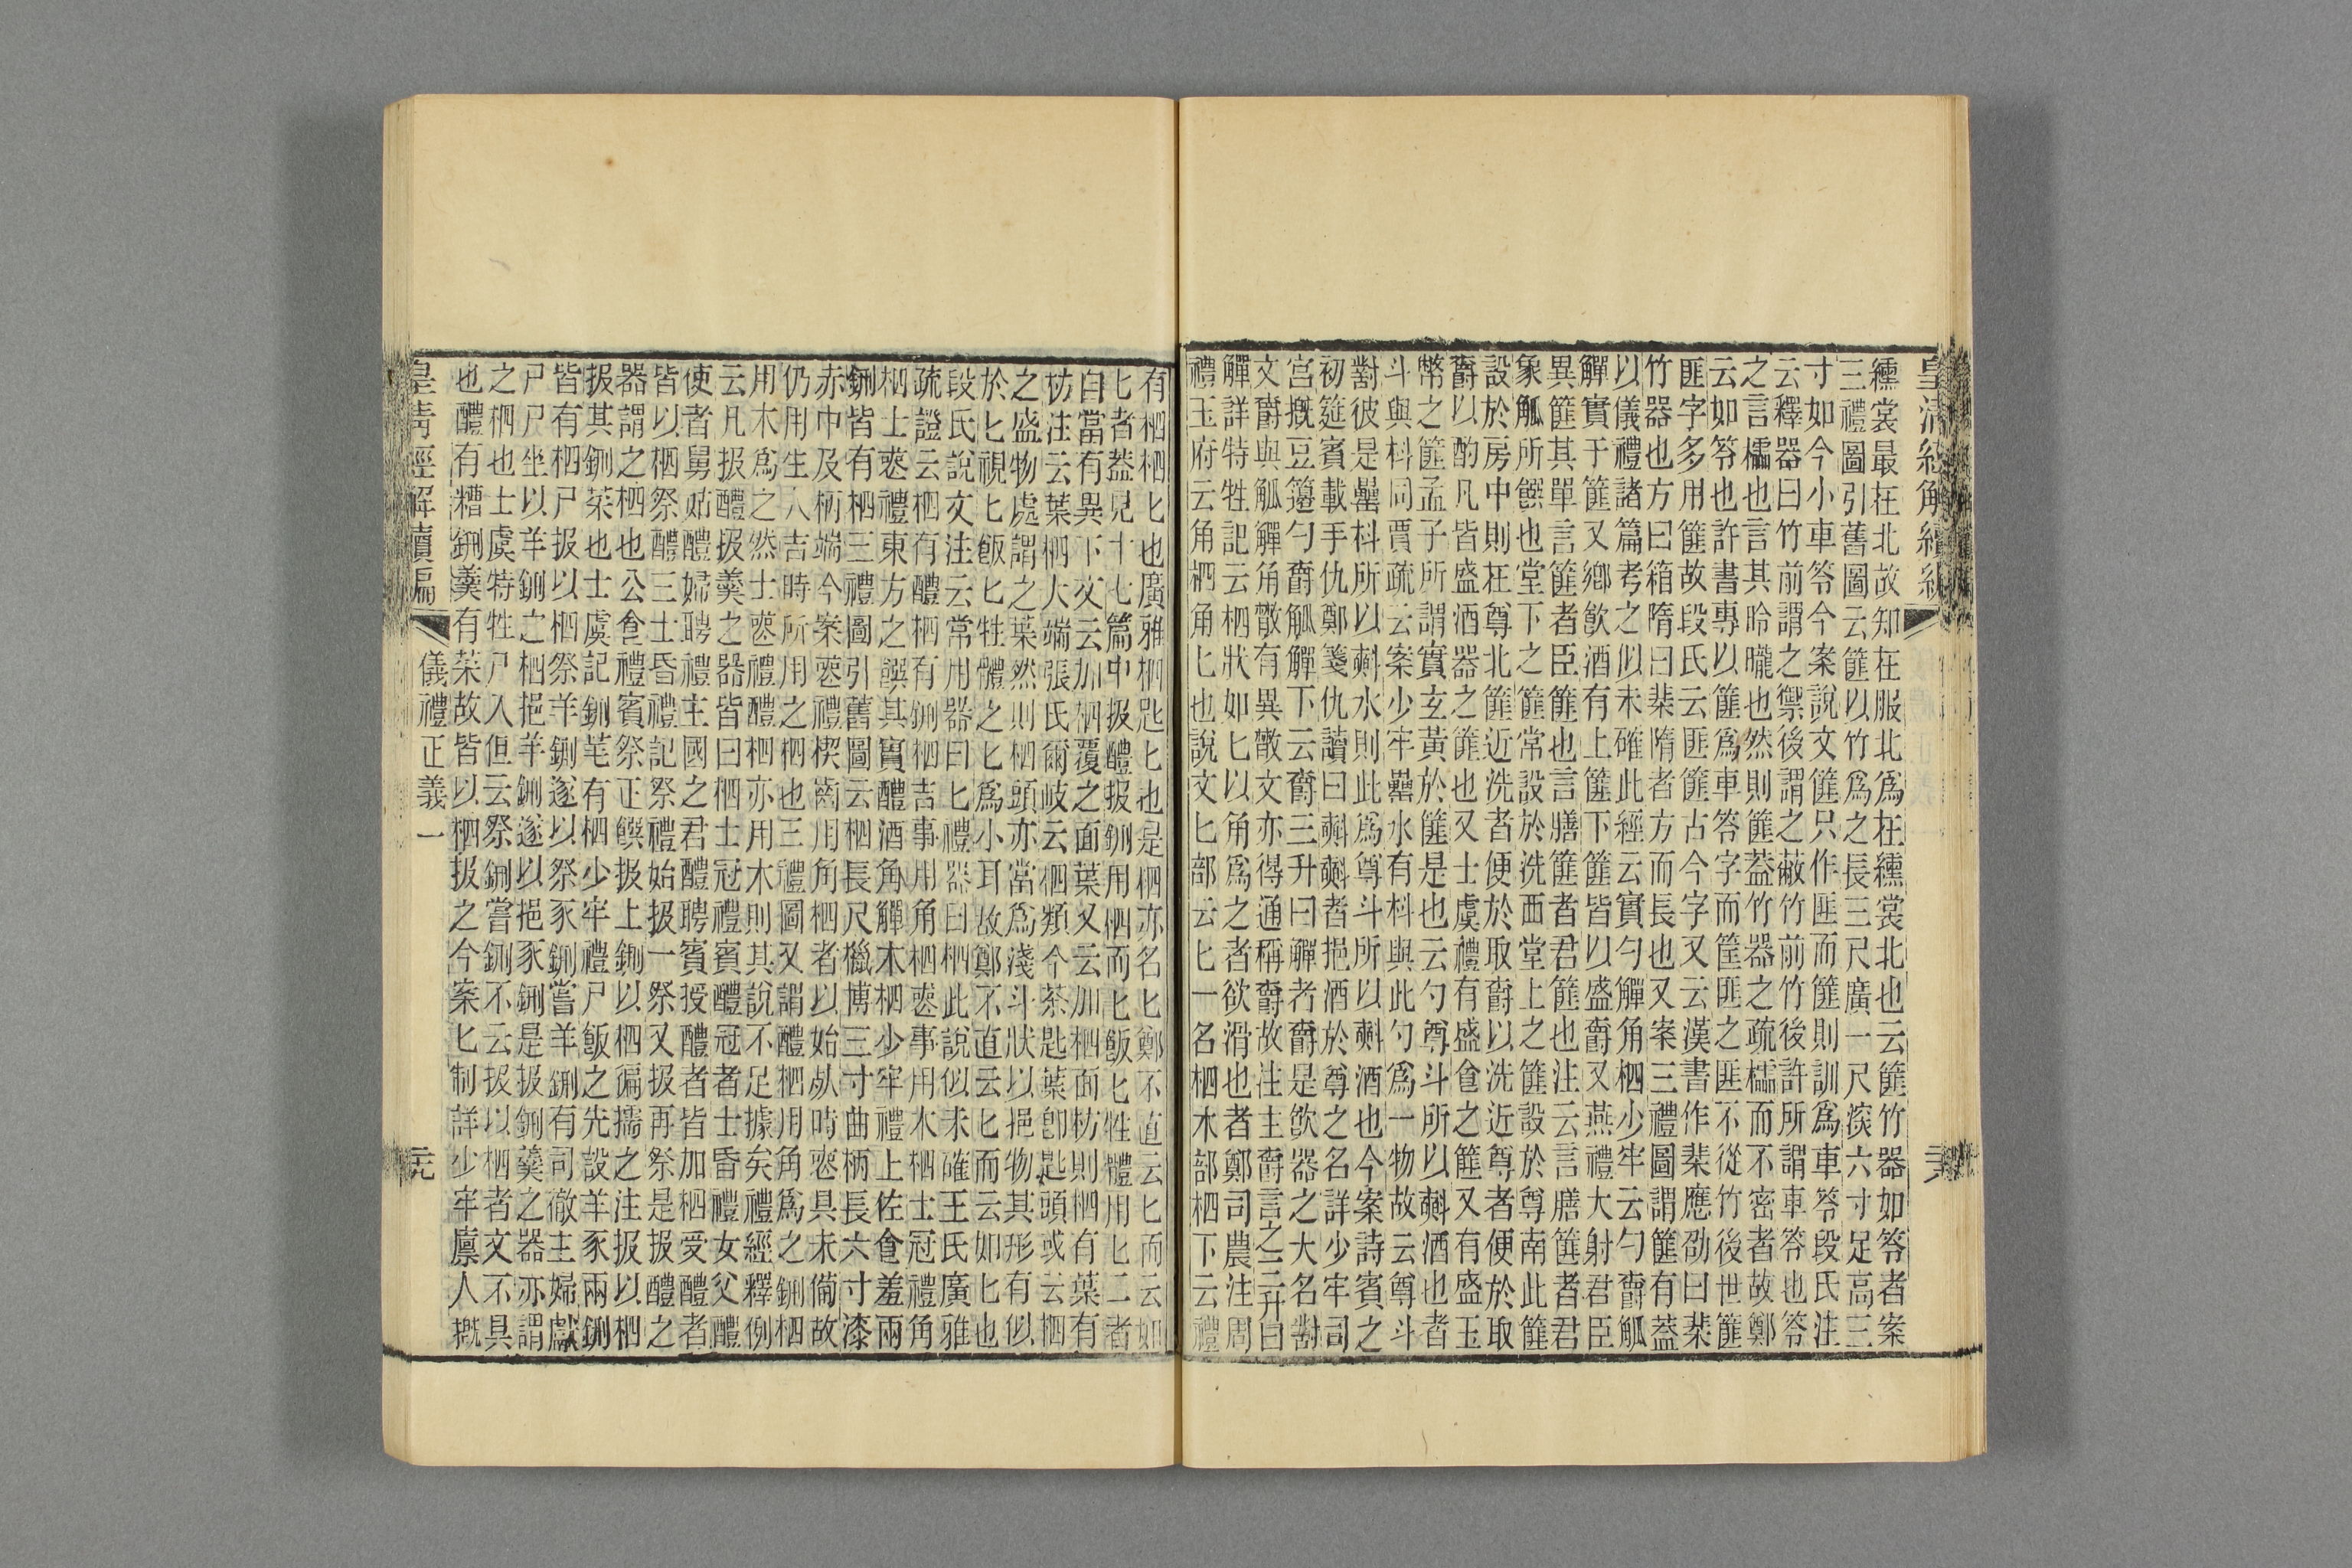 皇清經解續編
纁裳最在北故知在服北爲在纁裳北也云篚竹器如笭者案
三禮圖引舊圖云篚以竹爲之長三尺廣一尺深六寸足高三
寸如今小車笭今案說文篚只作匪而篚則訓爲車笭段氏注
云釋器曰竹前謂之禦後謂之蔽竹前竹後許所謂車笭也笭
之言櫺也言其昤曨也然則篚蓋竹器之疏櫺而不密者故鄭
云如笭也許書專以篚爲車笭字而筐匪之匪不從竹後世篚
匪字多用篚故段氏云匪篚古今字又云漢書作棐應劭曰棐
竹器也方曰箱隋曰棐隋者方而長也又案三禮圖謂篚有蓋
以儀禮諸篇考之似未確此經云實勺觶角柶少牢云勺爵觚
觶實于篚又鄉飲酒有上篚下篚皆以盛爵又燕禮大射君臣
異篚其單言篚者臣篚也言膳篚者君篚也注云言膳篚者君
象觚所饌也堂下之篚常設於洗西堂上之篚設於尊南此篚
設於房中則在尊北篚近洗者便於取爵以洗近尊者便於取
爵以酌凡皆盛酒器之篚也又士虞禮有盛食之篚又有盛玉
幣之篚孟子所謂實玄黃於篚是也云勺尊斗所以㪺酒也者
斗與枓同賈疏云案少牢罍水有枓與此勺爲一物故云尊斗
對彼是罍枓所以㪺水則此爲尊斗所以㪺酒也今案詩賓之
初筵賓載手仇鄭箋仇讀曰㪺㪺者挹酒於尊之名詳少牢司
宮摡豆籩勺爵觚觶下云爵三升曰觶者爵是飲器之大名對
文爵與觚觶角散有異散文亦得通稱爵故注主爵言之三升曰
觶詳特牲記云柶狀如匕以角爲之者欲滑也者鄭司農注周
禮玉府云角柶角匕也說文匕部云匕一名柶木部柶下云禮
有柶柶匕也廣雅柶匙匕也是柶亦名匕鄭不直云匕而云如
匕者葢見十七篇中扱醴扱鉶用柶而匕飯匕牲體用匕二者
自當有異下文云加柶覆之面葉又云加柶面枋則柶有葉有
枋注云葉柶大端張氏爾岐云柶類今茶匙葉卽匙頭或云柶
之盛物處謂之葉然則柶頭亦當爲淺斗狀以挹物其形有似
於匕視匕飯匕牲體之匕爲小耳故鄭不直云匕而云如匕也
段氏說文注云常用器曰匕禮器曰柶此說似未確王氏廣雅
疏證云柶有醴柶有鉶柶吉事用角柶喪事用木柶士冠禮角
柶士喪禮東方之饌其實醴酒角觶木柶少牢禮上佐食羞兩
鉶皆有柶三禮圖引舊圖云柶長尺櫼博三寸曲柄長六寸漆
赤中及柄端今案喪禮楔齒用角柶者以始死時喪具未備故
仍用生人吉時所用之柶也三禮圖又謂醴柶用角爲之鉶柶
用木爲之然士喪禮醴柶亦用木則其說不足據矣禮經釋例
云凡扱醴扱羹之器皆曰柶士冠禮賓醴冠者士昏禮女父醴
使者舅姑醴婦聘禮主國之君醴聘賓授醴者皆加柶受醴者
皆以柶祭醴三士昏禮記祭禮始扱一祭又扱再祭是扱醴之
器謂之柶也公食禮賓祭正饌扱上鉶以柶徧擩之注扱以柶
扱其鉶菜也士虞記鉶芼有柶少牢禮尸飯之先設羊豕兩鉶
皆有柶尸扱以柶祭羊鉶遂以祭豕鉶嘗羊鉶有司徹主婦獻
尸尸坐以羊鉶之柶挹羊鉶遂以挹豕鉶是扱鉶羹之器亦謂
之柶也士虞特牲尸入但云祭鉶嘗鉶不云扱以柶者文不具
也醴有糟鉶羹有菜故皆以柶扱之今案匕制詳少牢廩人摡
皇清經解續編
儀禮正義一